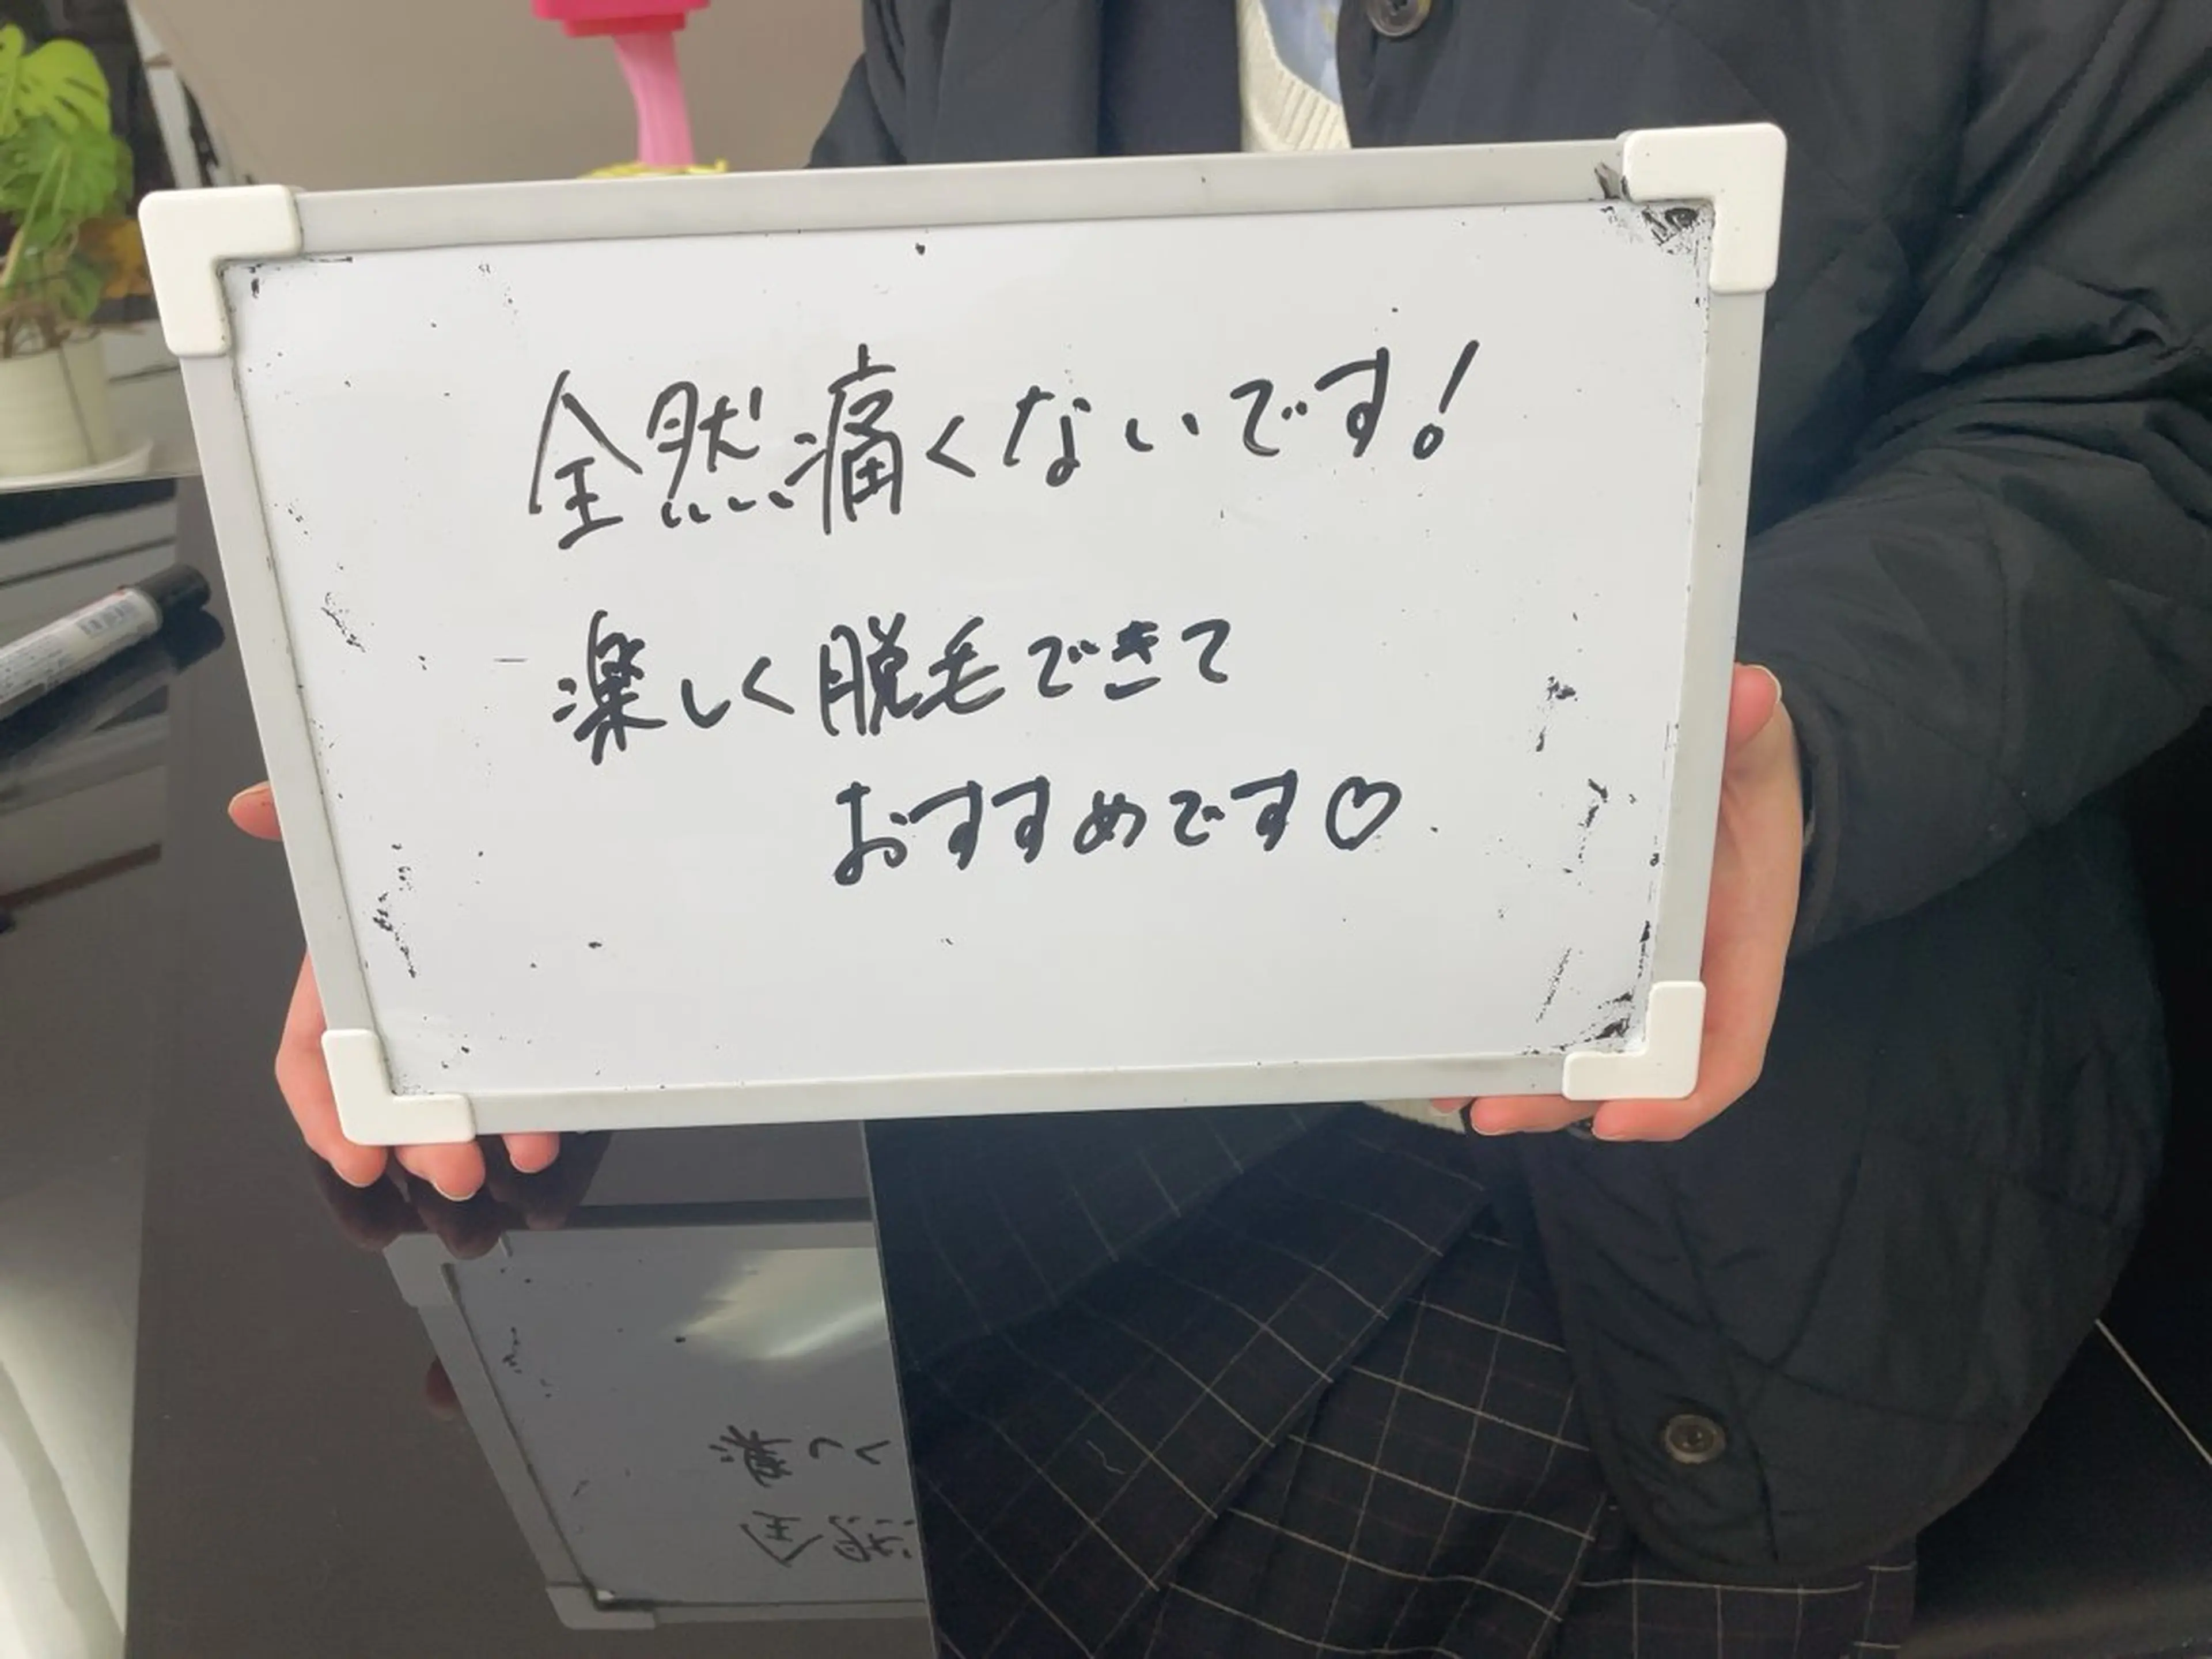 全然痛くないです!
楽しく脱毛できて
おすすめです♡